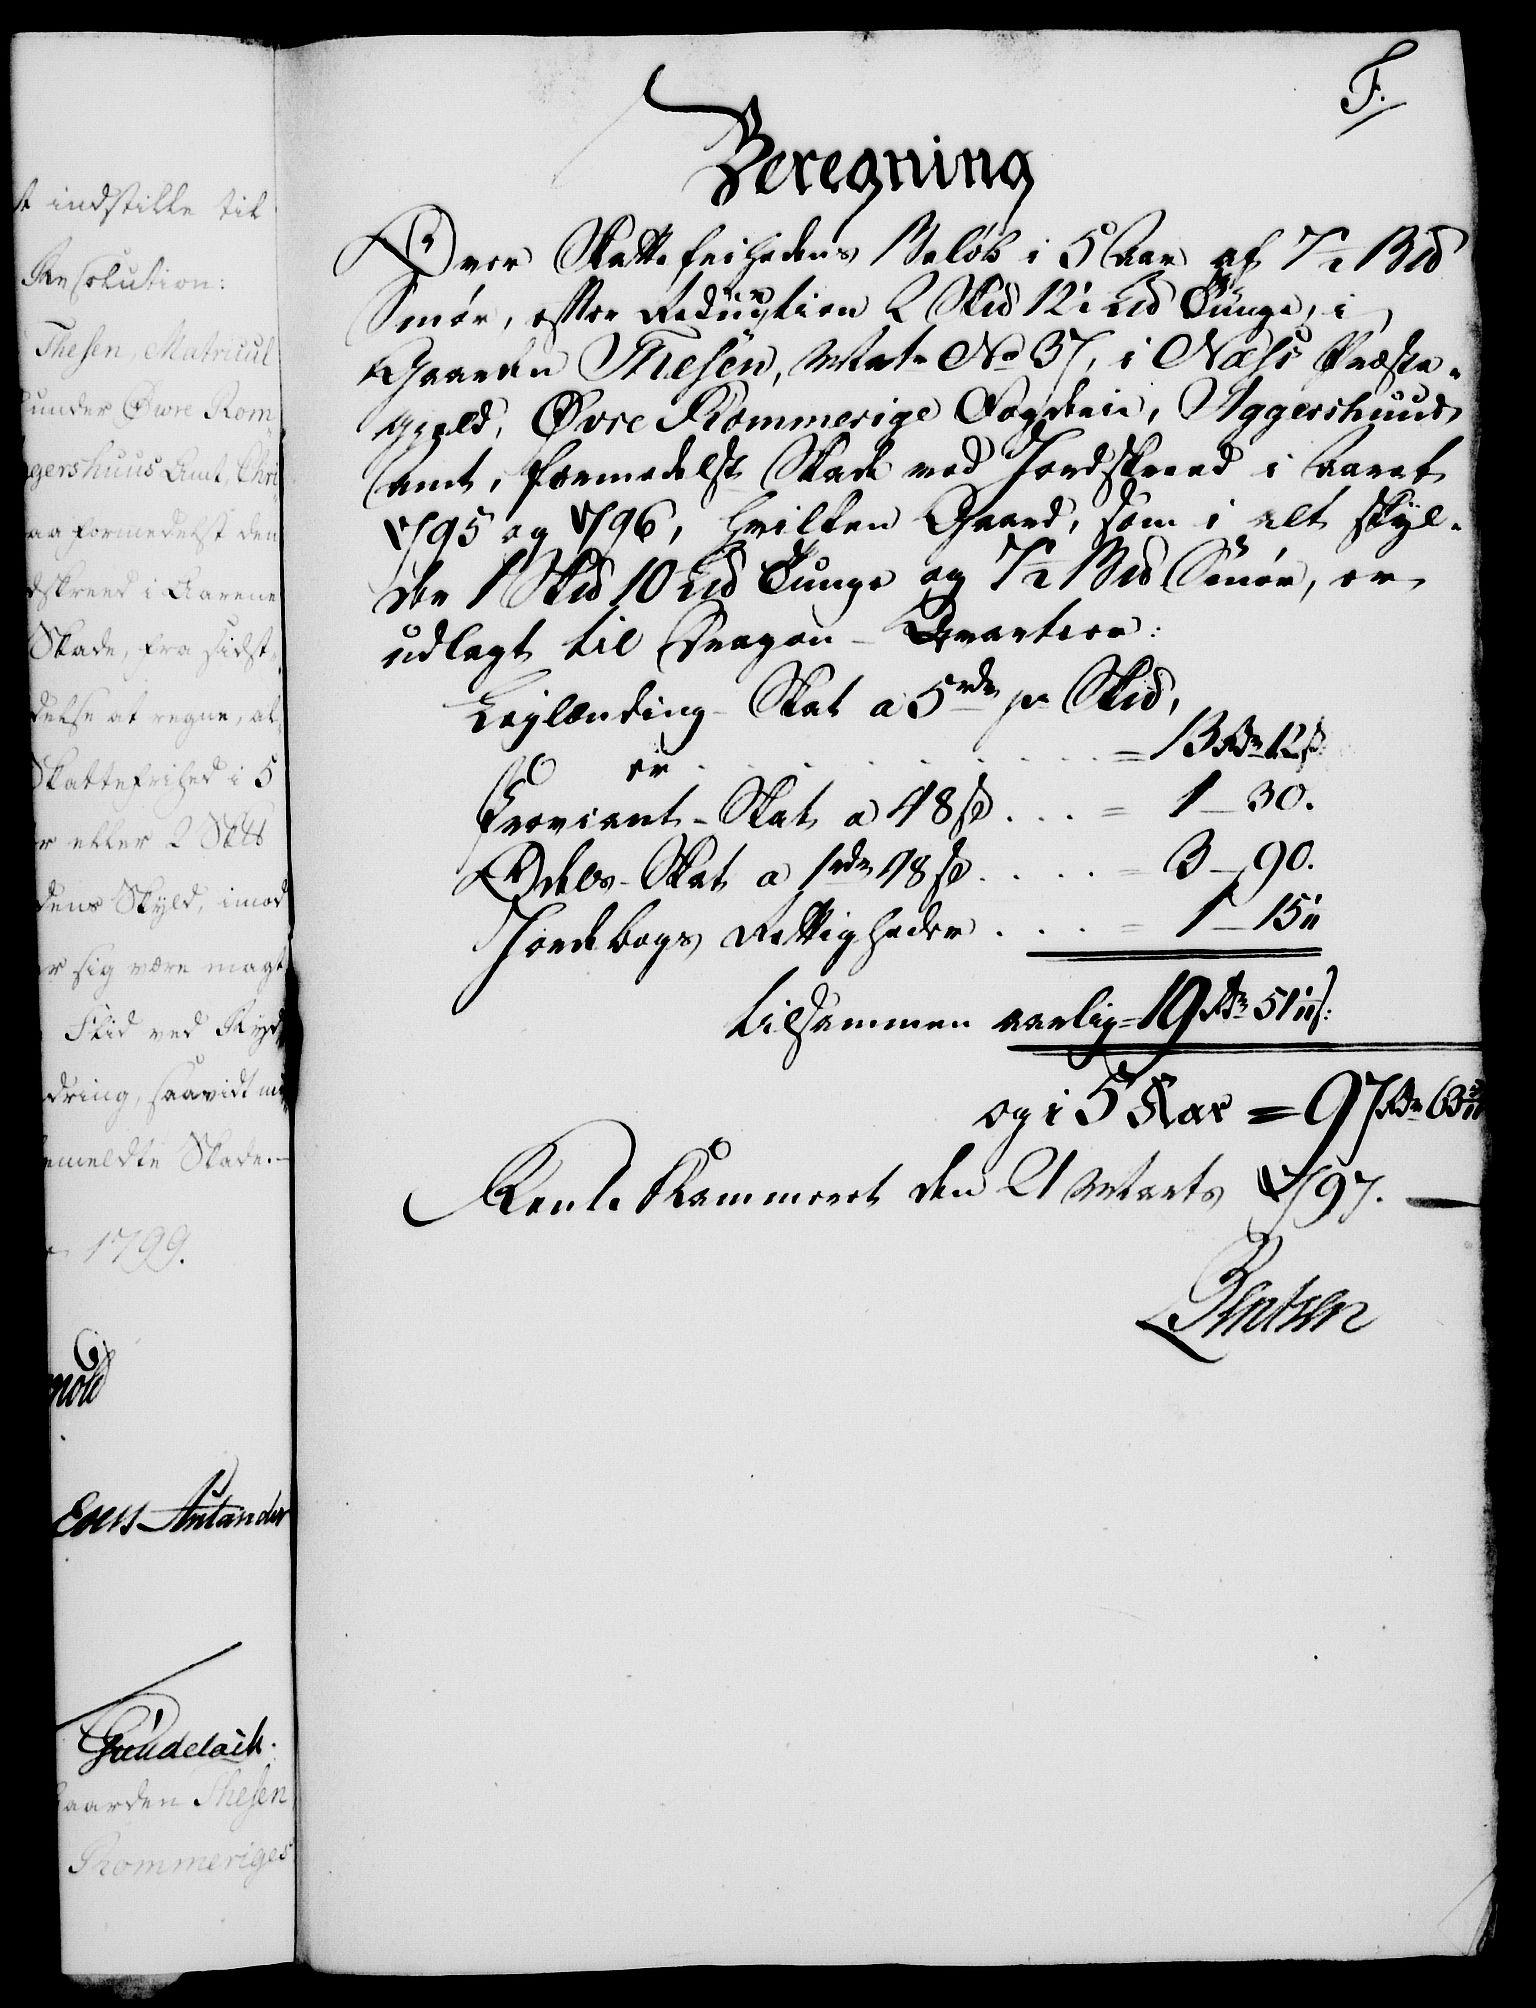 F.
Beregning
Over Skattefrihedens Beløb i 5 Aar af 7½ Bpd
Smør, efter Reduction 2 Skpd 12½ Lpd Tunge, i
Gaarden Thesen, Matr. No 37, i Næss Præste-
gjeld, Øvre Rommerige Fogderie, Aggershuus
Amt, formedelst Skade ved Jordskreed i Aaret
1795 og 1796, hvilken Gaard, som i alt skyl-
der 1 Skpd 10 Lpd Tunge og 7½ Bpd Smør, er
udlagt til Dragon-Qvarteer:
Leylænding-Skat a 5 rdr pr Skpd,
er . . . . . . . . = 13 Rdr 12 s:
Proviant-Skat a 48 s . . . = 1 - 30.
Odels-Skat a 1 rdr 48 s . . . . = 3 - 90.
Jordebogs Rettigheder . . . . = 1 - 15
tilsammen aarlig = 19 Rdr 51 s:
og i 5 Aar = 97 Rdr 63
Rente Kammeret den 21 Marts 1797.
Bentsen
t indstille til
Resolution:
Thesen, Matricul
under Øwre Rom
gershuus Amt, Chri
aa formedelst den
dskreed i Aarene
Skade, fra sidst
delse at regne, al
Skattefrihed i 5
r eller 2 Skpd
dens Skyld, imod
r sig være magt
Flid ved Ryd
dring, saavidt mu
emeldte Skade.-
1799.
mold
Eoens-Antander
Guudelach.
Gaarden Thesen
Rommeriges